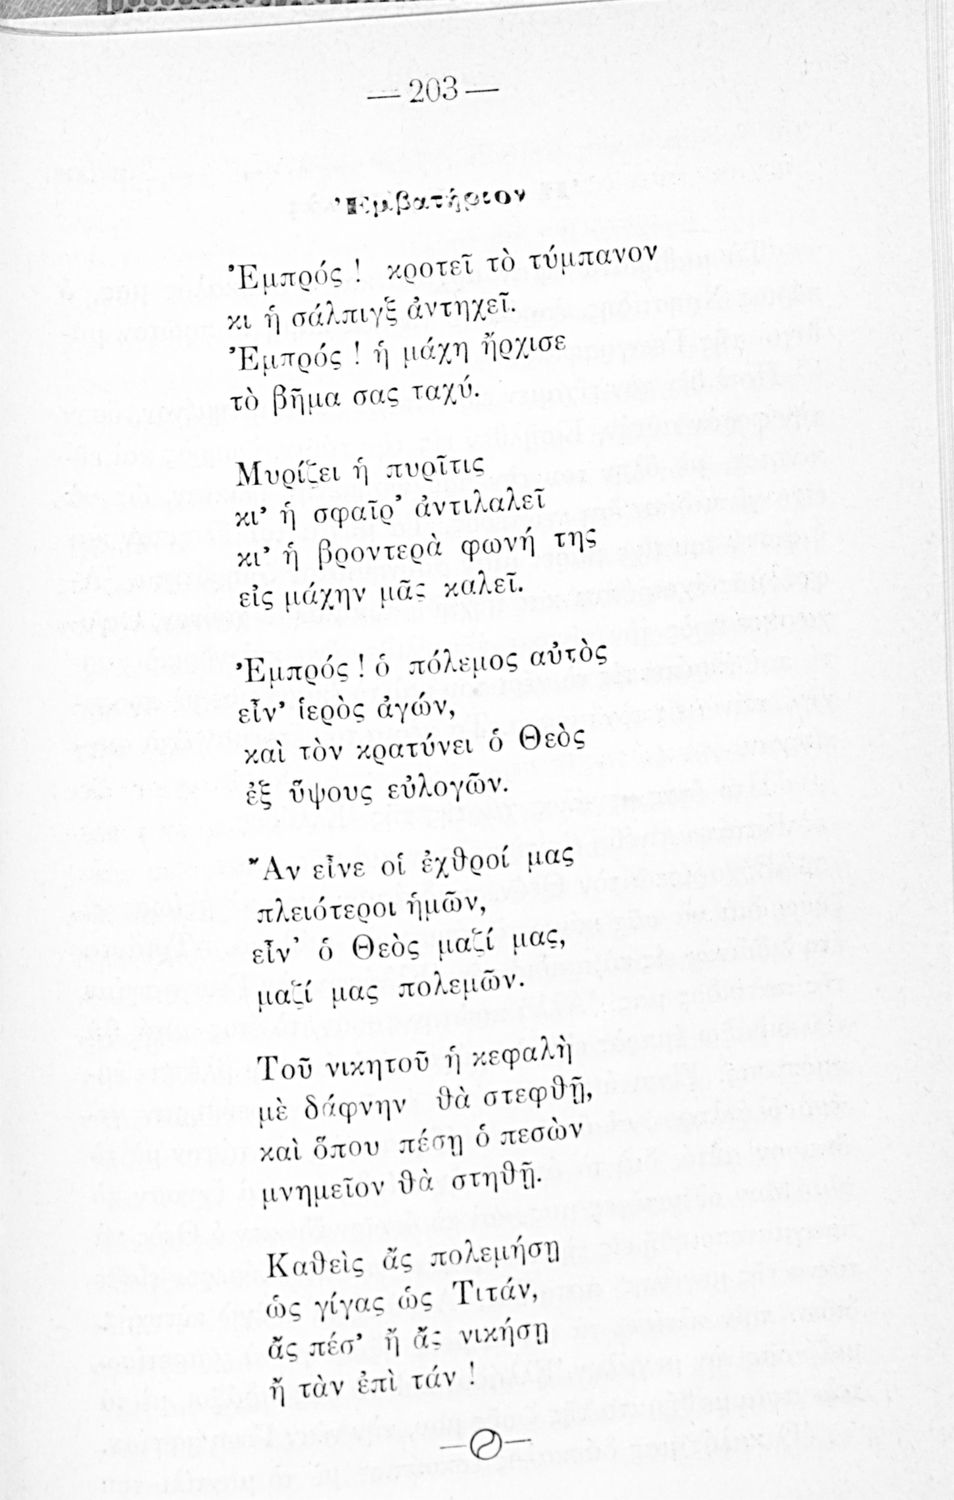 — 203 —
Ἐμβατήριον
Ἐμπρός ! κροτεῖ τὸ τύμπανον
κι ἡ σάλπιγξ ἀντηχεῖ.
Ἐμπρός ! ἡ μάχη ἤρχισε
τὸ βῆμα σας ταχύ.
Μυρίζει ἡ πυρῖτις
κι’ ἡ σφαῖρ’ ἀντιλαλεῖ
κι’ ἡ βροντερὰ φωνή της
εἰς μάχην μᾶς καλεῖ.
Ἐμπρός ! ὁ πόλεμος αὐτὸς
εἶν’ ἱερὸς ἀγών,
καὶ τὸν κρατύνει ὁ Θεὸς
ἐξ ὕψους εὐλογῶν.
Ἂν εἶνε οἱ ἐχθροί μας
πλειότεροι ἡμῶν,
εἶν’ ὁ Θεὸς μαζί μας,
μαζί μας πολεμῶν.
Τοῦ νικητοῦ ἡ κεφαλὴ
μὲ δάφνην θὰ στεφθῇ,
καὶ ὅπου πέσῃ ὁ πεσὼν
μνημεῖον θὰ στηθῇ.
Καθεὶς ἂς πολεμήσῃ
ὡς γίγας ὡς Τιτάν,
ἂς πέσ’ ἢ ἂς νικήσῃ
ἢ τὰν ἐπὶ τάν !